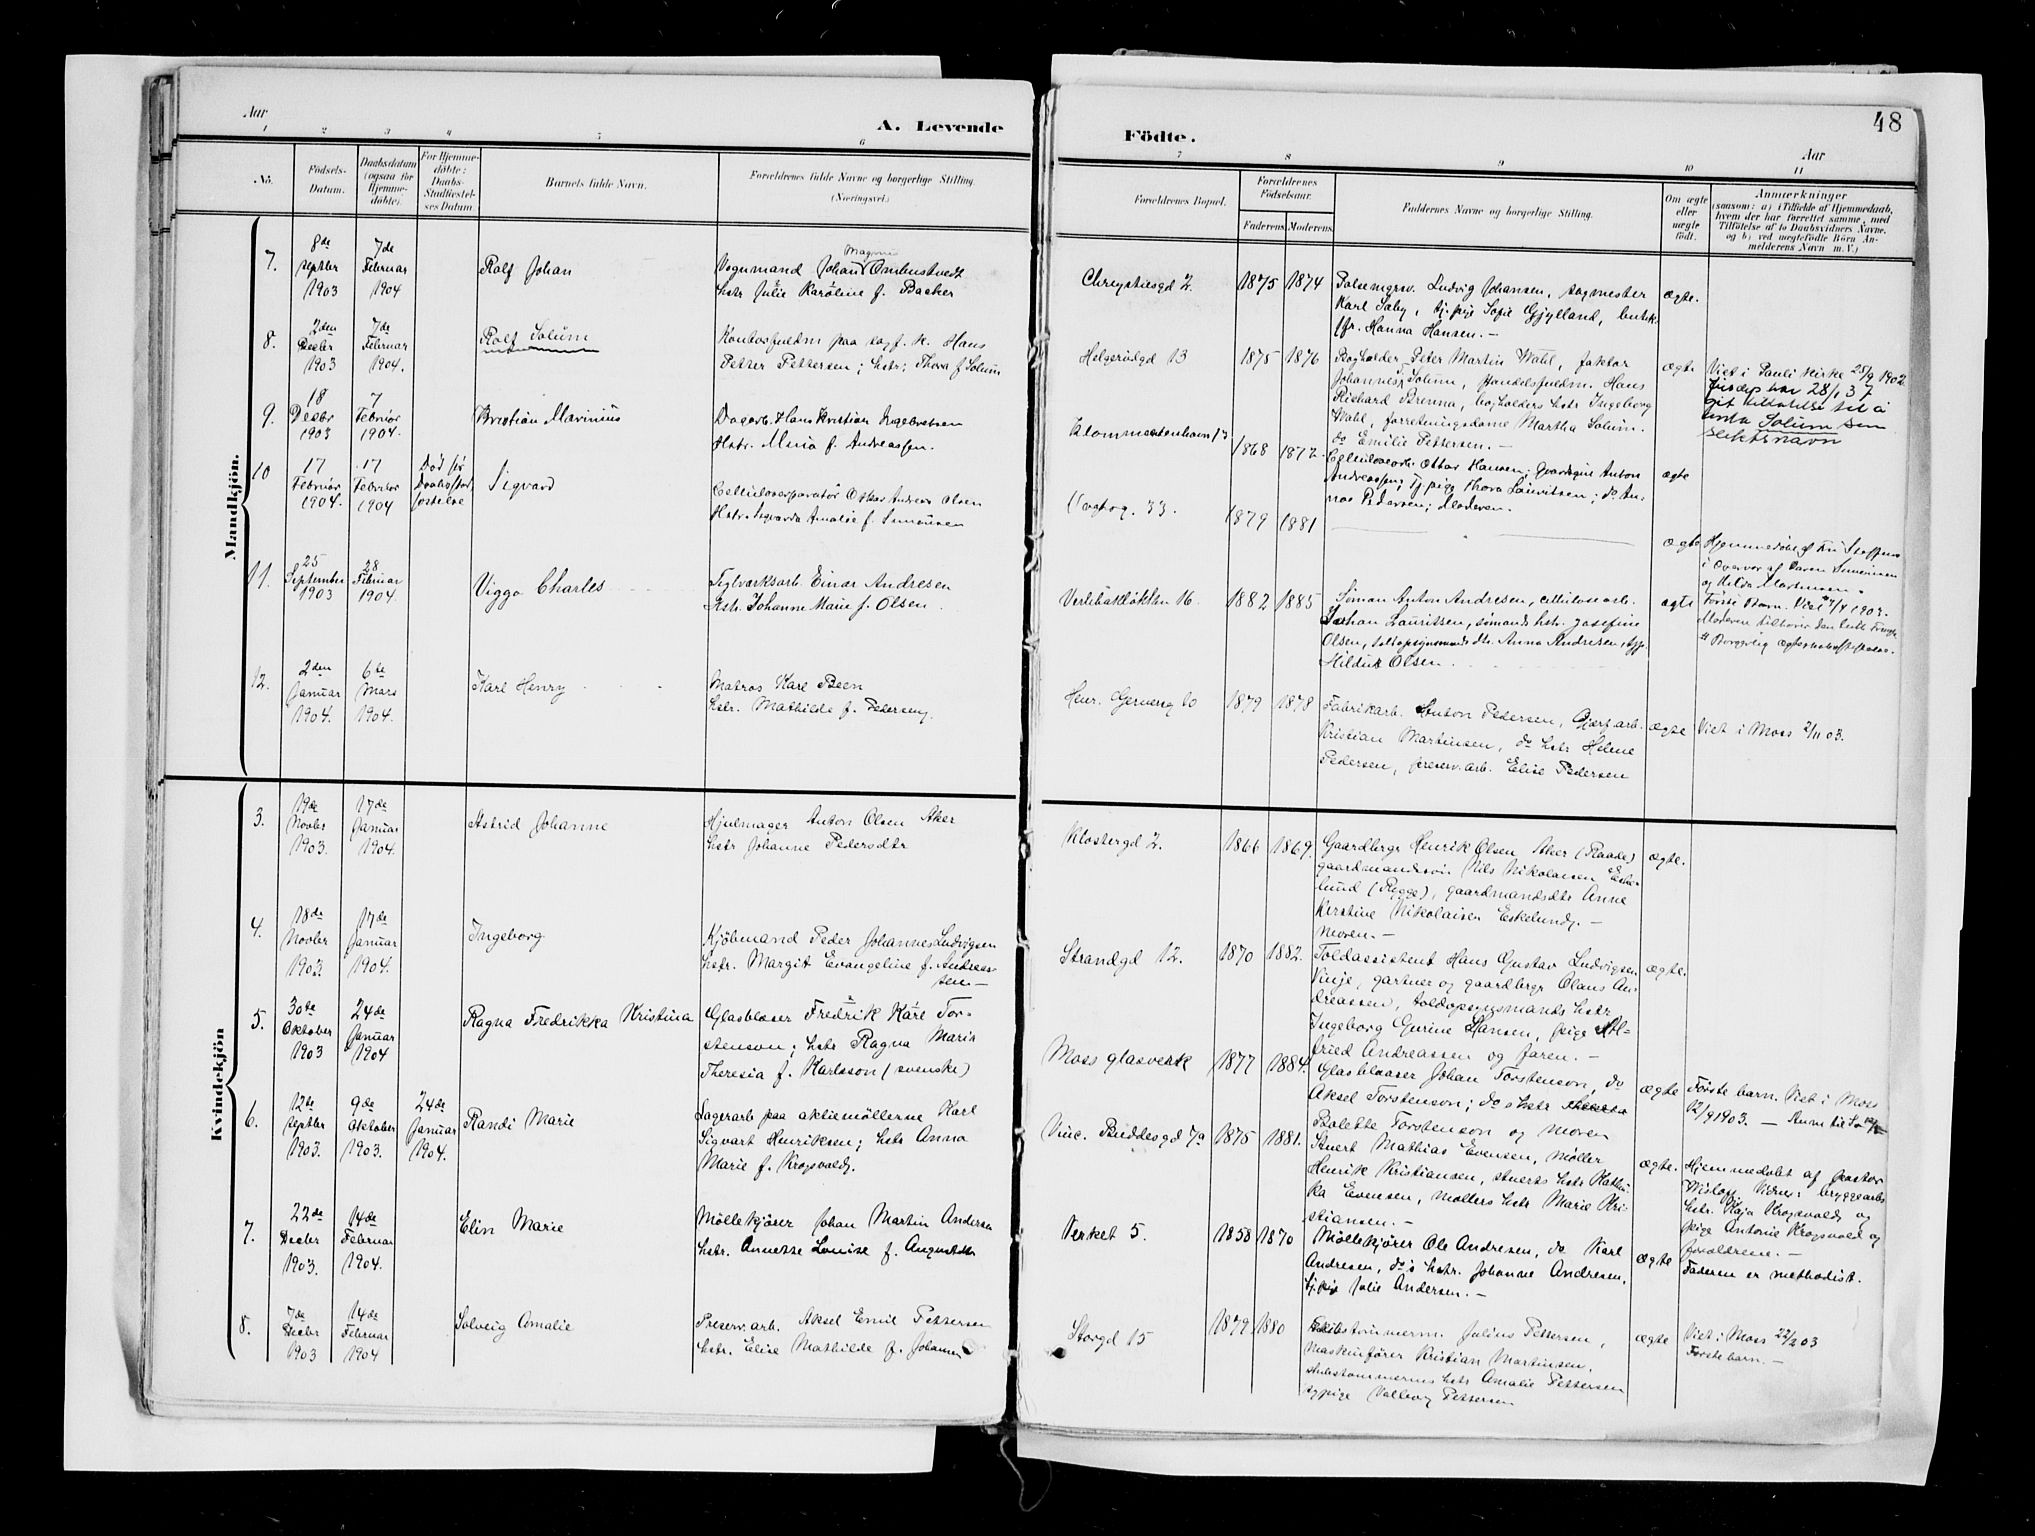 48
Aar
A. Levende
Fødte.
Aar
1 2 3 4 5 6
7 8 9 10 11
No.
Fødsels-Datum.
Daabsdatum (ogsaa for Hjemme-døbte).
For Hjemme-døbte: Daabs-Stadfæstel-ses Datum
Barnets fulde Navn.
Forældrenes fulde Navne og borgerlige Stilling.
(Næringsvei.)
Forældrenes Bopæl.
Forældrenes Fødselsaar.
Faderens Moderens
Faddernes Navne og borgerlig Stilling.
Om ægte eller uægte født.
Anmærkninger
(saasom: a) i Tilfælde af Hjemmedaab,
hvem der har forrettet samme, med
Tilføielse af to Daabsvidners Navne.
og b) ved uægtefødte Børn An-
melderens Navn m. V.)
Mandkjøn.
7.
8de septbr 1903
7de Februar 1904
Rolf Johan
Magnus
Vognmand Johan
hstr Julie Karoline f. Backer
Chrystiesgd 2.
1875 1874
Pølsemgrsv. Ludvig Johansen, sagmester
Karl Saby, tj.pige Sofie Gjylland, butik
frk. Hanna Hansen. –
ægte.
8.
2den Decbr 1903
7de Februar 1904.
Rolf Solum
Kontorfuldm paa sagf. k. Hans
Petter Pettersen; hstr; Thora f Solum
Helgerødgd 13
1875 1876
Bogholder Peter Martin Wahl, faktor
Johannes T. Solum, Handelsfuldm. Hans
Richard Brenna, bogholders hstr Ingeborg
Wahl, forretningsdame Martha Solum.
do Emilie Pettersen. –
ægte
Viet i Pauli Kirke 25/9 1902.
Jusdep har 28/1 37
git tillatelse til å
Solum som
slektsnavn
9.
18 Decbr 1903
7 Februar 1904.
Kristian Marinius
Dagarb. Hans Kristian Ingebretsen
Hstr. Maria f. Andreassen.
1868 1872
Cellulosearb. Ottar Hansen; Anton
Andreassen; tj pige Thora Lauritsen; do An-
na Pedersen; Moderen.
ægte
10
17 Februar 1904.
17 Februar 1904
Død før Daabsstad-festelse
Sigvard
Oskar Andreas Olsen
Hstr. Sigvarda Amalie f. Simonsen
Vogtsg. 33.
1879 1881
ægte
Hjemmedøbt af
i Overvær af Simonsen
og Hilda Martinsen.
11.
25 September 1903
28 Februar 1904.
Viggo Charles
Teglverksarb. Einar Andresen
Hstr. Johanne Marie f. Olsen.
16.
1882 1885
Simon Anton Andresen, cellulosearb.
Johan Lauritsen, sømands hstr. Josefine
Olsen, toldopsynsmands dtr. Anna Andresen,
Olsen.
ægte
Første Barn. Viet
Moderen tilhører den luth Frimgh.
Borgerlig
12.
2den Januar 1904.
6te Mars 1904.
Karl Henry
Matros Karl Been
hstr. Mathilde f. Pedersen.
Henr. Gernersg 10
1879 1878
Fabrikarb. Anton Pedersen, Gjærf arb.
Kristian Martinsen, do hstr Helene
Pedersen, preserv.arb. Elise Pedersen
ægte
Viet i Moss 2/11 03.
Kvindekjøn
3.
19de Novbr 1903.
17de Januar 1904.
Astrid Johanne
Hjulmager Anton Olsen Aker
hstr Johanne Pedersdtr
Klostergd 2.
1866 1869.
Gaardbrgr Henrik Olsen Aker (Raade)
gaardmandssøn Nils Nikolaisen Eske-
lund (Rygge), gaardmandsdtr Anne
Kirstine Nikolaisen Eskelund. –
moren. –
ægte.
4.
18de Novbr 1903
17de Januar 1904.
Ingeborg
Kjøbmand Peder Johannes Ludvigsen
hstr. Margit Evangeline f. Andreas-
sen –
Strandgd 12.
1870 1882.
Toldassistent Hans Gustav Ludvigsen
Vinje, gartner og gaardbrgr Olaus An-
dreassen, toldopsynsmands hstr
Ingeborg Gurine Hansen, pige Al-
fried Andreassen og faren. –
ægte.
5.
30te Oktober 1903
24de Januar 1904
Ragna Fredrikka Kristina
Glasblæser Fredrik Karl Tor-
stenson; hstr Ragna Maria
Theresia f. Karlsson (svenske)
Moss glasverk
1877 1884.
Glasblæser Johan Torstenson, do
Aksel Torstenson; do s hstr
Bolette Torstenson og moren
ægte
Første barn. Viet i Moss
12/9 1903. –
6.
12te Septbr 1903.
9de Oktober 1903.
24de Januar 1904.
Randi Marie
Lagerarb paa aktiemøllerne Karl
Sigvart Henriksen; hstr Anna
Marie f. Krogsvold.
Vinc. Buddesgd 7a
1875 1881.
Stuert Mathias Evensen, møller
Henrik Kristiansen, stuerts hstr Kathi-
ka Evensen, møllers hstr Marie Kri-
stiansen. –
ægte.
Hjemmedøbt af pastor
Vidner: bryggearb
hstr. Kaja Krogsvold og
pige Antonie Krogsvold og
forældrene. –
7.
22de Decbr 1903.
14de Februar 1904.
Elin Marie
Møllekjører Johan Martin Andersen
hstr. Annette Louise f. Augustdtr
Verket 5.
1858 1870
Møllekjører Ole Andresen, do Karl
Andresen, do's hstr. Johanne Andresen,
tj.pige Julie Andersen. –
ægte
Faderen er methodist.
8.
7de Decbr 1903
14de Februar 1904
Solveig Amalie
Preserv.arb. Aksel Emil Pettersen
hstr. Elise Mathilde f. Johansen
Storgd 15
1879 1880
Skibstømmerm. Julius Pettersen,
Maskinfører Kristian Martinsen,
skibstømmerms hstr Amalie Pettersen
sypige Valborg Pettersen
ægte
Viet i Moss 22/2 03
Første barn. –